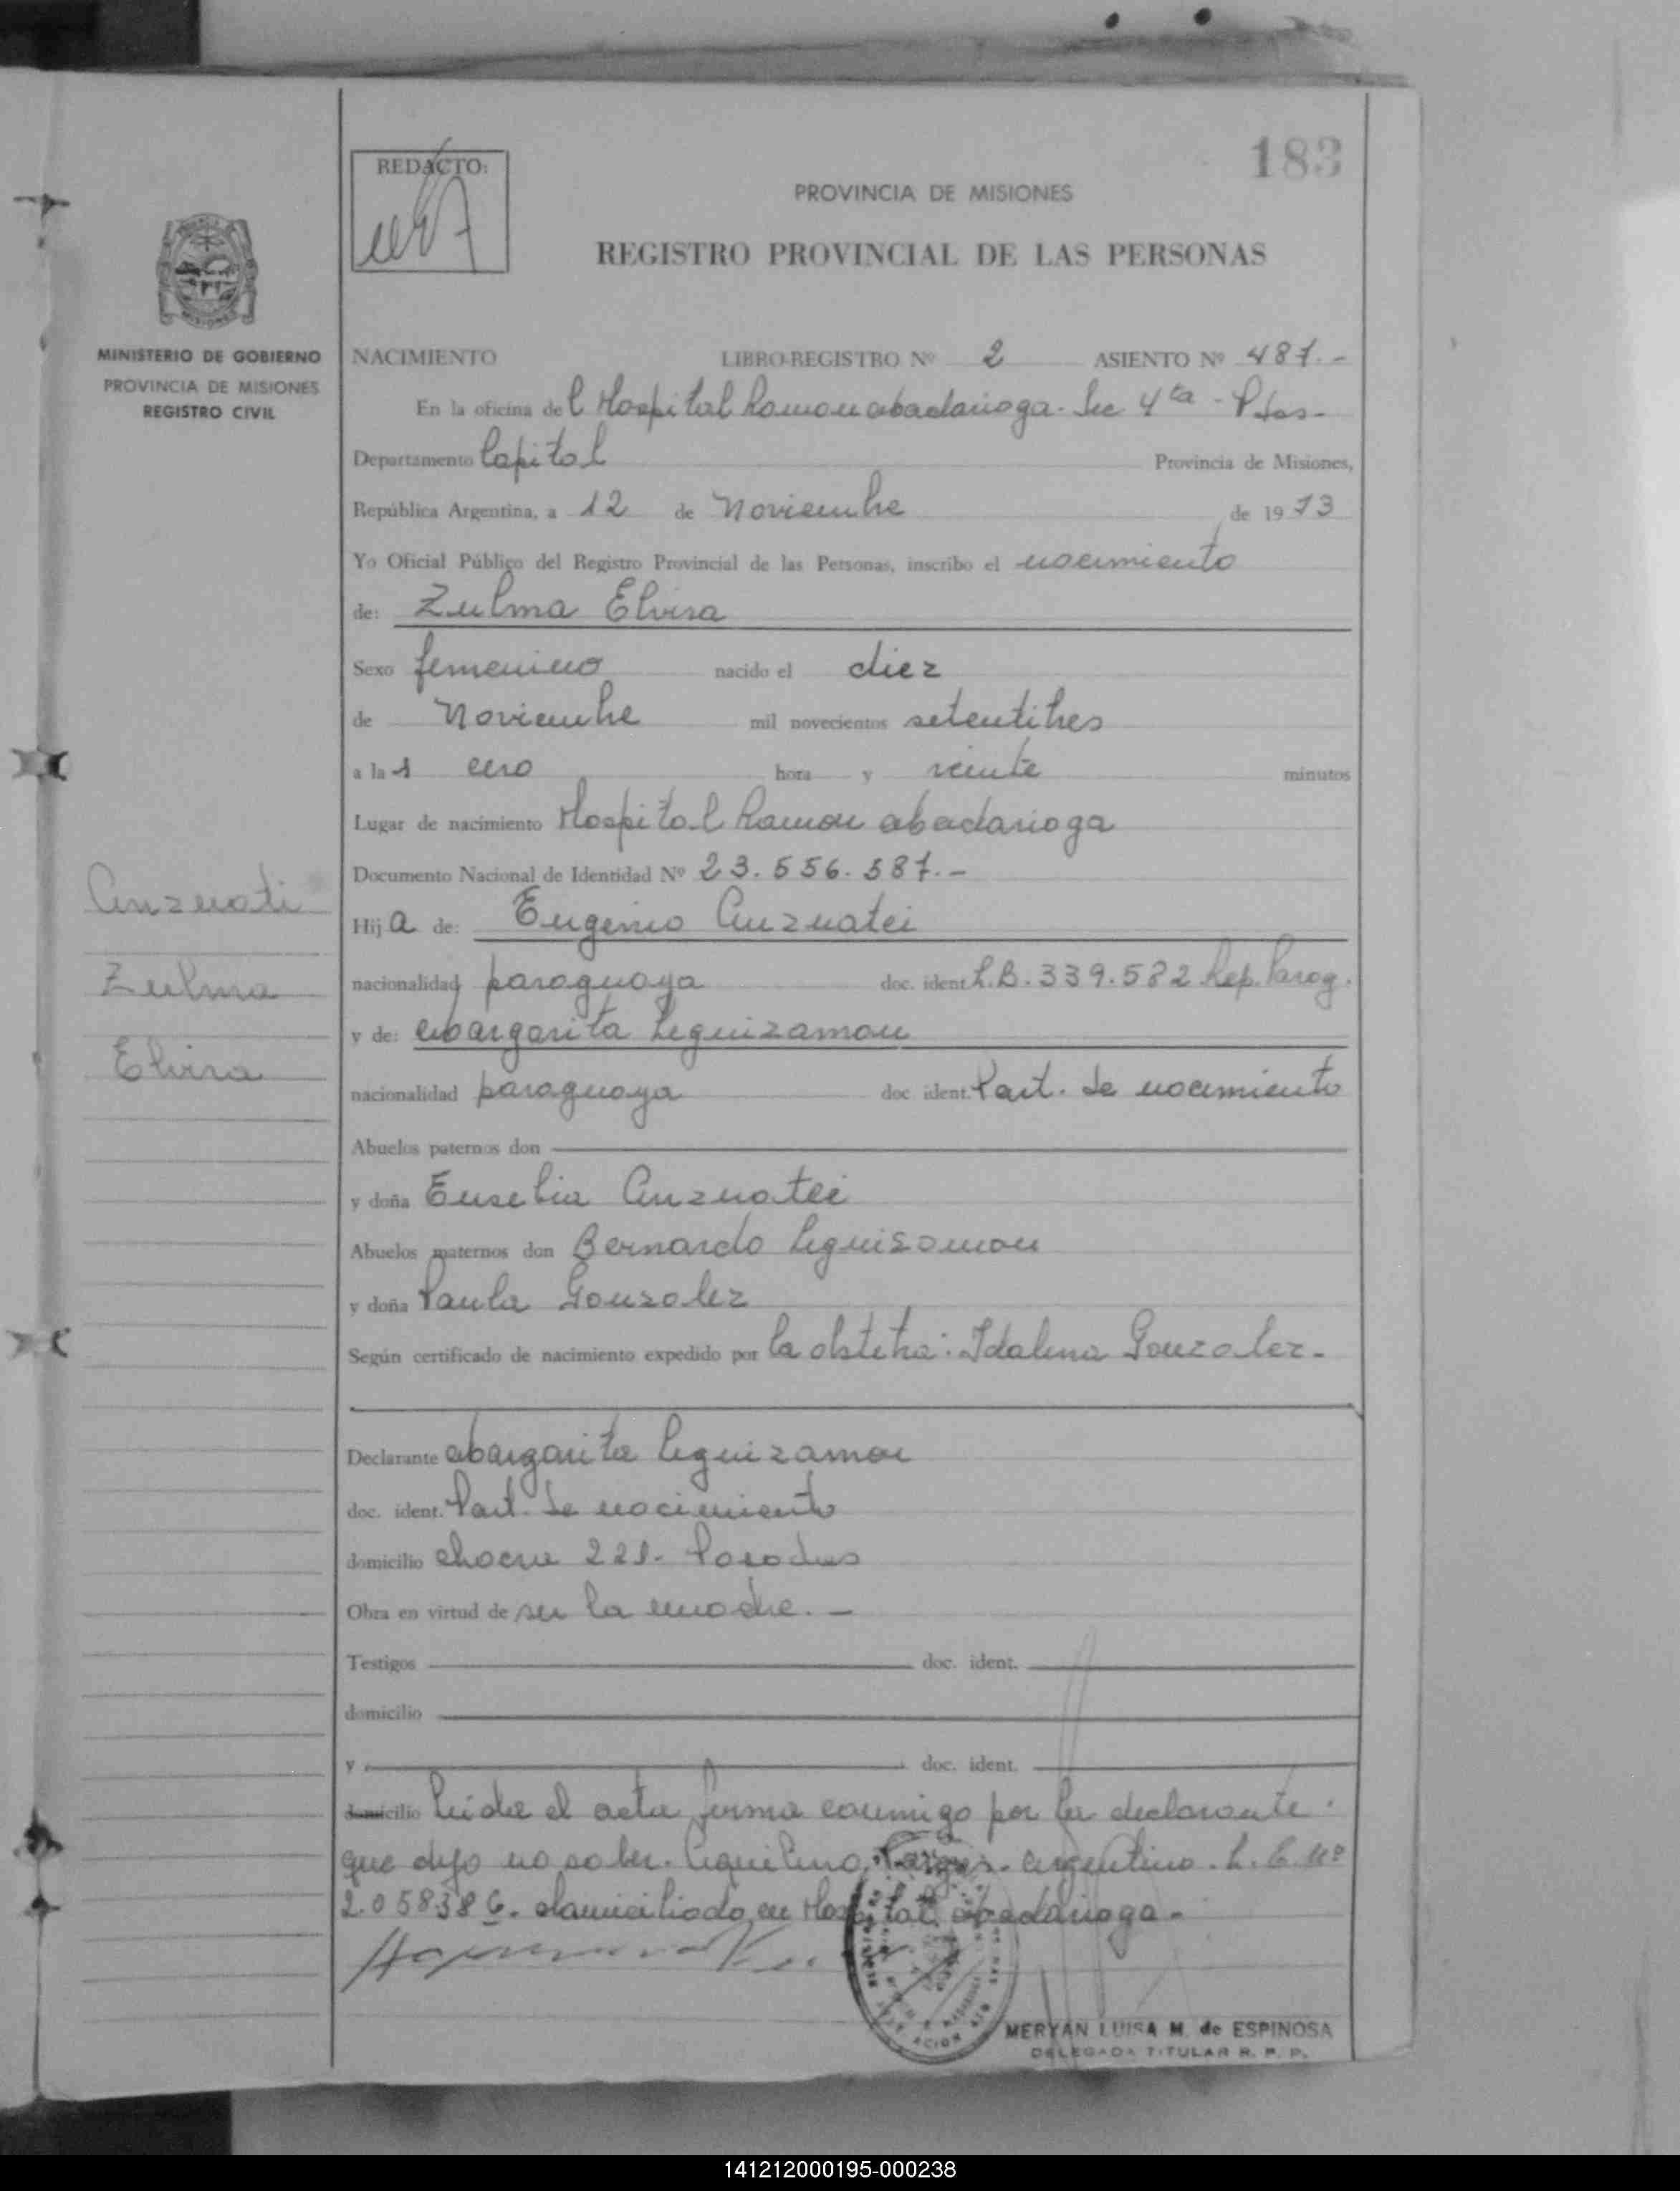 183
REDACTO:
PROVINCIA DE MISIONES
REGISTRO PROVINCIAL DE LAS PERSONAS
MINISTERIO DE GOBIERNO
PROVINCIA DE MISIONES
REGISTRO CIVIL
NACIMIENTO LIBRO-REGISTRO Nº 2 ASIENTO Nº 487.-
En la oficina del Hospital Ramon abadarioga. Sec 4ta - Pdas-
Departamento Capital Provincia de Misiones,
República Argentina, a 12 de Noviembre de 1973
Yo Oficial Público del Registro Provincial de las Personas, inscribo el nacimiento
de: Zulma Elvira
Sexo femenino nacido el diez
de Noviembre mil novecientos setentitres
a las cero hora y veinte minutos
Lugar de nacimiento Hospital Ramon abadarioga
Documento Nacional de Identidad Nº 23.556.587.-
Anzuati
Hija de: Eugenio Anzuatei
Zulma
nacionalidad paraguaya doc. ident. L.B. 339.582 Rep. Parag.
y de: Margarita Leguizamon
Elvira
nacionalidad paraguaya doc. ident. Part. de nacimiento
Abuelos paternos don
y doña Eusebia Anzuatei
Abuelos maternos don Bernardo Leguisamon
y doña Paula Gonzalez
Según certificado de nacimiento expedido por la obstetra: Idalina Gonzalez.-
Declarante Margarita Leguizamon
doc. ident. Part. de nacimiento
domicilio 221. Posadas
Obra en virtud de ser la madre.-
Testigos doc. ident.
domicilio
y doc. ident.
domicilio Leida el acta firma conmigo por la declarante
que dijo no saber. Aquilino argentino. L. E. Nº
2.058386. domiciliado en Hospital abadarioga-
MERYAN LUISA M. de ESPINOSA
DELEGADA TITULAR R. P. P.
141212000195-000238